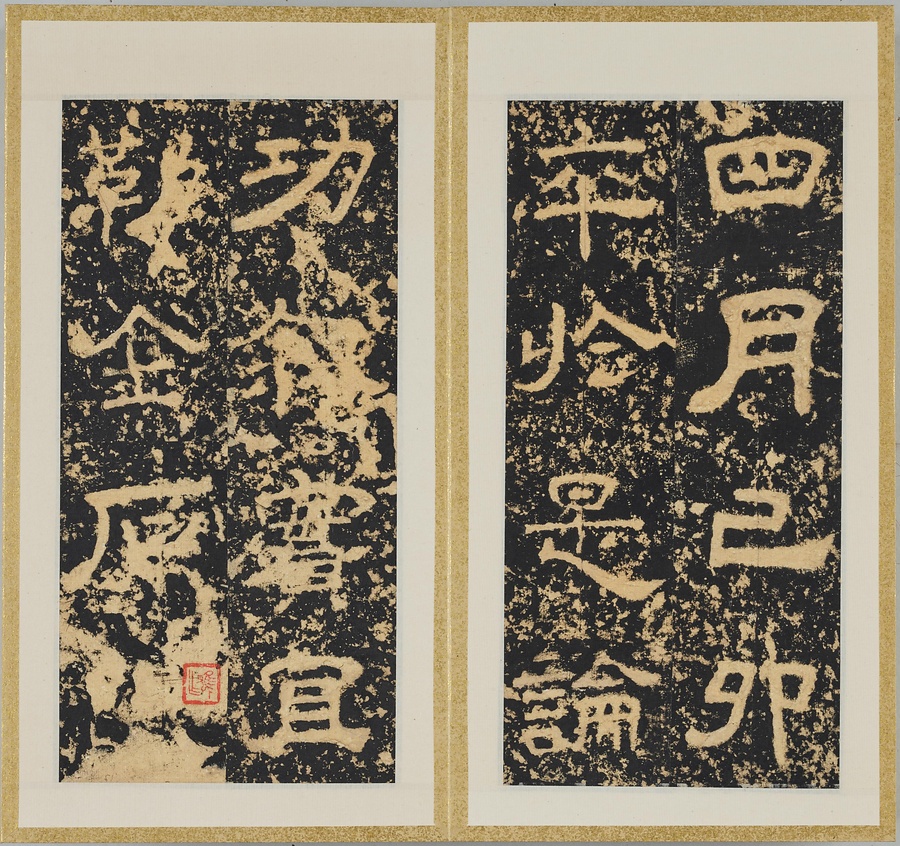 四月己卯
卒於是論
功宜
勒金石